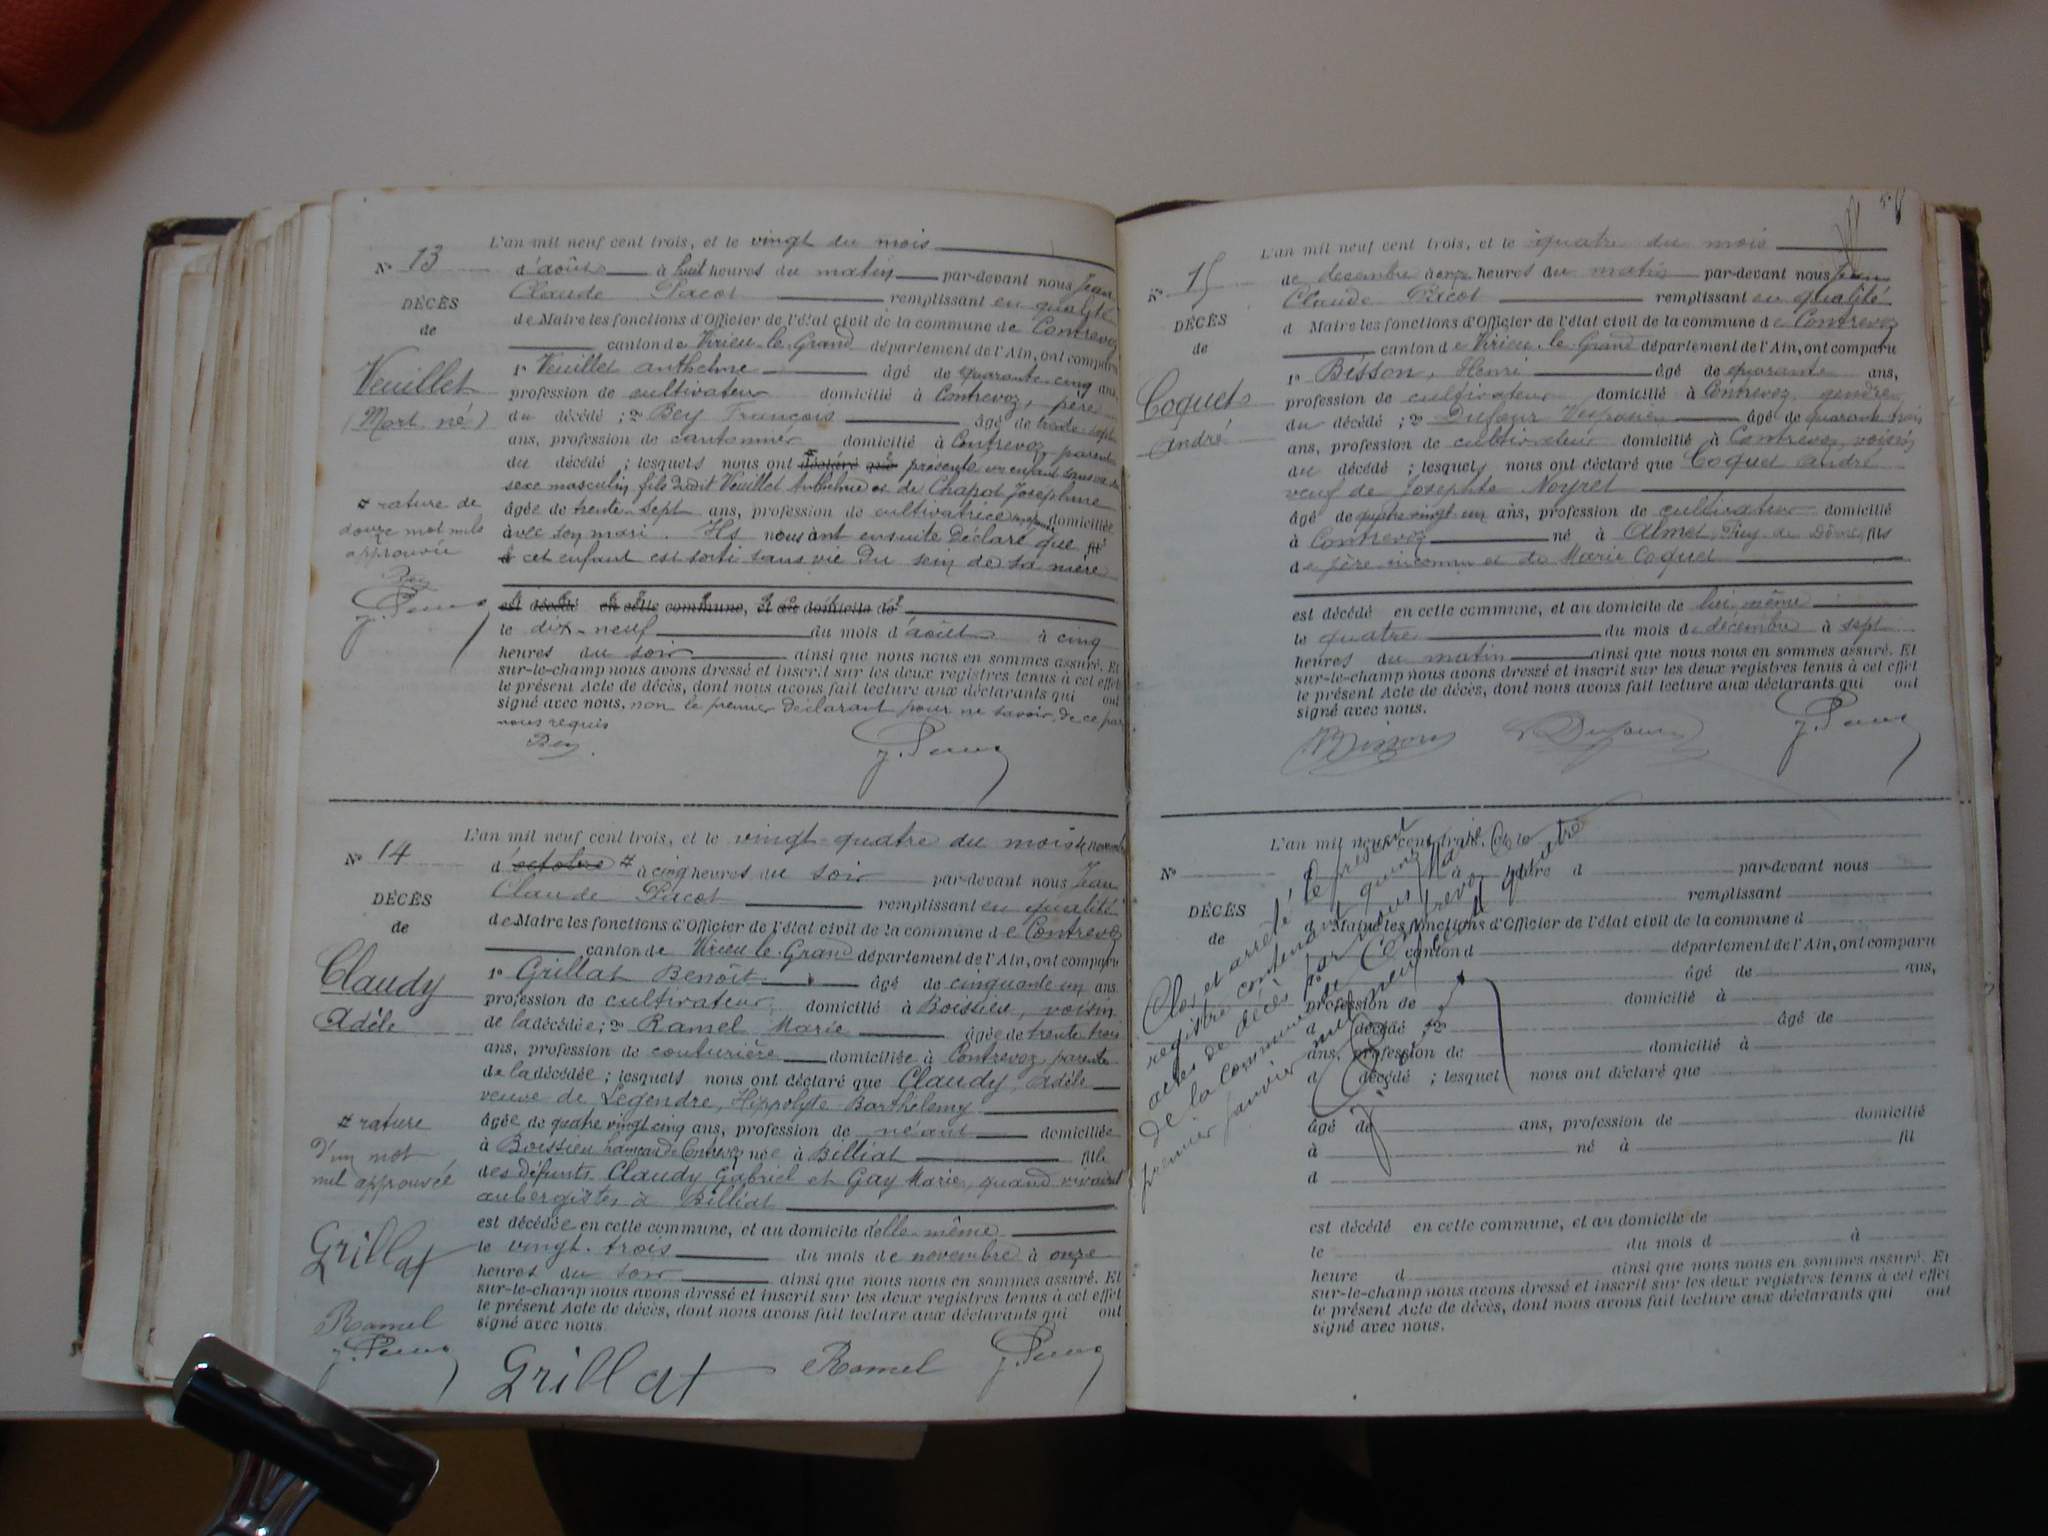 L'an mil neuf cent trois, et le vingt du mois
No 13
d'août à huit heures du matin par-devant nous Jean
Claude Pacot remplissant en qualité
DÉCÈS
de Maire les fonctions d'Officier de l'état civil de la commune de Contrevoz
de
canton de Virieu-le-Grand département de l'Ain, ont comparu
Veuillet
1o Veuillet anthelme âgé de quarante-cinq ans
(Mort né)
profession de cultivateur domicilié à Contrevoz, père
du décédé ; 2o Bey François âgé de trente-sept
ans, profession de cantonnier domicilié à Contrevoz parent
du décédé ; lesquels nous ont déclaré que présenté un enfant sans vie du
sexe masculin fils dudit Veuillet Anthelme et de Chapot Joséphine
# rature de
douze mot nuls
approuvée
âgée de trente-sept ans, profession de cultivatrice domiciliée
avec son mari. Ils nous ont ensuite déclaré que fil
d cet enfant est sorti sans vie du sein de sa mère
Bey
J. Pacot
est décédé en cette commune, et au domicile de
le dix-neuf du mois d'août à cinq
heures du soir ainsi que nous nous en sommes assuré. Et
sur-le-champ nous avons dressé et inscrit sur les deux registres tenus à cet effet
le présent Acte de décès, dont nous avons fait lecture aux déclarants qui ont
signé avec nous, non le premier déclarant pour ne savoir, de ce par
nous requis
Bey. J. Pacot
L'an mil neuf cent trois, et le vingt-quatre du mois de novembre
No 14
d'octobre # à cinq heures du soir par-devant nous Jean
Claude Pacot remplissant en qualité
DÉCÈS
de Maire les fonctions d'Officier de l'état civil de la commune de Contrevoz
de
canton de Virieu le Grand département de l'Ain, ont comparu
Claudy
Adèle
1o Grillat Benoît âgé de cinquante un ans
profession de cultivateur, domicilié à Boissieu, voisin
de la décédée ; 2o Ramel Marie âgée de trente trois
ans, profession de couturière domiciliée à Contrevoz, parente
de la décédée ; lesquels nous ont déclaré que Claudy, Adèle
veuve de Legendre, Hippolyte Barthélemy
# rature
d'un mot
nul approuvée
âgée de quatre vingt cinq ans, profession de néant domiciliée
à Boissieu hameau de Contrevoz née à Billiat fille
des défunts Claudy Gabriel et Gay Marie, quand vivaient
aubergistes à Billiat
est décédée en cette commune, et au domicile d'elle-même
le vingt-trois du mois de novembre à onze
heures du soir ainsi que nous nous en sommes assuré. Et
sur-le-champ nous avons dressé et inscrit sur les deux registres tenus à cet effet
le présent Acte de décès, dont nous avons fait lecture aux déclarants qui ont
signé avec nous.
Grillat
Ramel
J. Pacot
Grillat Ramel J. Pacot
L'an mil neuf cent trois, et le quatre du mois
No 15
de décembre à onze heures du matin par-devant nous Jean
Claude Pacot remplissant en qualité
DÉCÈS
d Maire les fonctions d'Officier de l'état civil de la commune de Contrevoz
de
canton de Virieu-le-Grand département de l'Ain, ont comparu
Coquet
André
1o Bisson, Henri âgé de quarante ans,
profession de cultivateur domicilié à Contrevoz gendre
du décédé ; 2o Dufour Vespasien âgé de quarante trois
ans, profession de cultivateur domicilié à Contrevoz, voisin
du décédé ; lesquels nous ont déclaré que Coquet André
veuf de Josephte Noyret
âgé de quatre vingt un ans, profession de cultivateur domicilié
à Contrevoz né à Almet, Puy-de-Dôme, fils
de père inconnu et de Marie Coquet
est décédé en cette commune, et au domicile de lui même
le quatre du mois de décembre à sept
heures du matin ainsi que nous nous en sommes assuré. Et
sur-le-champ nous avons dressé et inscrit sur les deux registres tenus à cet effet
le présent Acte de décès, dont nous avons fait lecture aux déclarants qui ont
signé avec nous.
Bisson Dufour J. Pacot
L'an mil neuf cent trois, et le
No
à heure d par-devant nous
remplissant
DÉCÈS
d Maire les fonctions d'Officier de l'état civil de la commune d
de
canton d département de l'Ain, ont comparu
âgé de ans,
profession de domicilié à
d décédé ; 2o âgé de
ans, profession de domicilié à
d décédé ; lesquel nous ont déclaré que
âgé de ans, profession de domicilié
à né à fil
d
est décédé en cette commune, et au domicile de
le du mois d à
heure d ainsi que nous nous en sommes assuré. Et
sur-le-champ nous avons dressé et inscrit sur les deux registres tenus à cet effet
le présent Acte de décès, dont nous avons fait lecture aux déclarants qui ont
signé avec nous.
Clos et arrêté, le présent
registre contenant quinze
actes de décès par nous Maire
de la commune de Contrevoz
premier janvier mil neuf cent quatre
J. Pacot